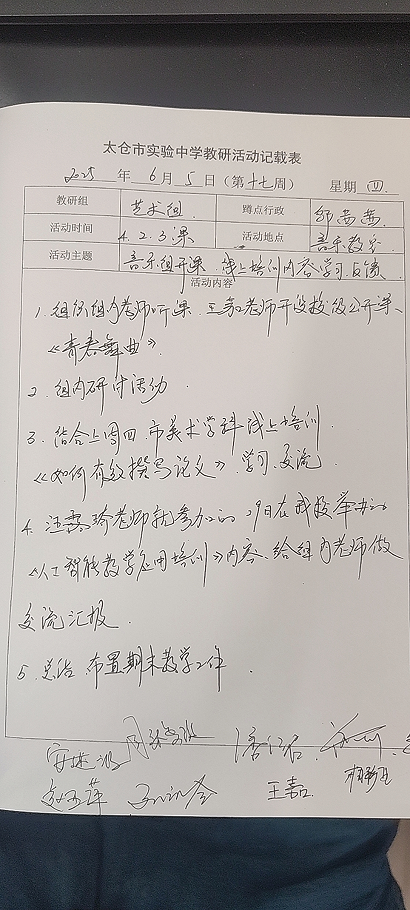 太仓市实验中学教研活动记载表
2025 年 6 月 5 日（第十七周） 星期 四
教研组 艺术组 蹲点行政 邹茜茜
活动时间 下午 2.3课 活动地点 音乐教室
活动主题 音乐组开课 线上培训内容学习反馈
活动内容
1. 组织组内老师听课. 王嘉老师开设校级公开课、
《青春舞曲》.
2. 组内研讨活动
3. 结合上周四 市美术学科线上培训
《如何有效撰写论文》. 学习、交流.
4. 汪露琦老师就参加的 29日在我校举办的
《人工智能教学应用培训》内容、给组内老师做
交流汇报.
5. 总结、布置期末教学工作.
王嘉